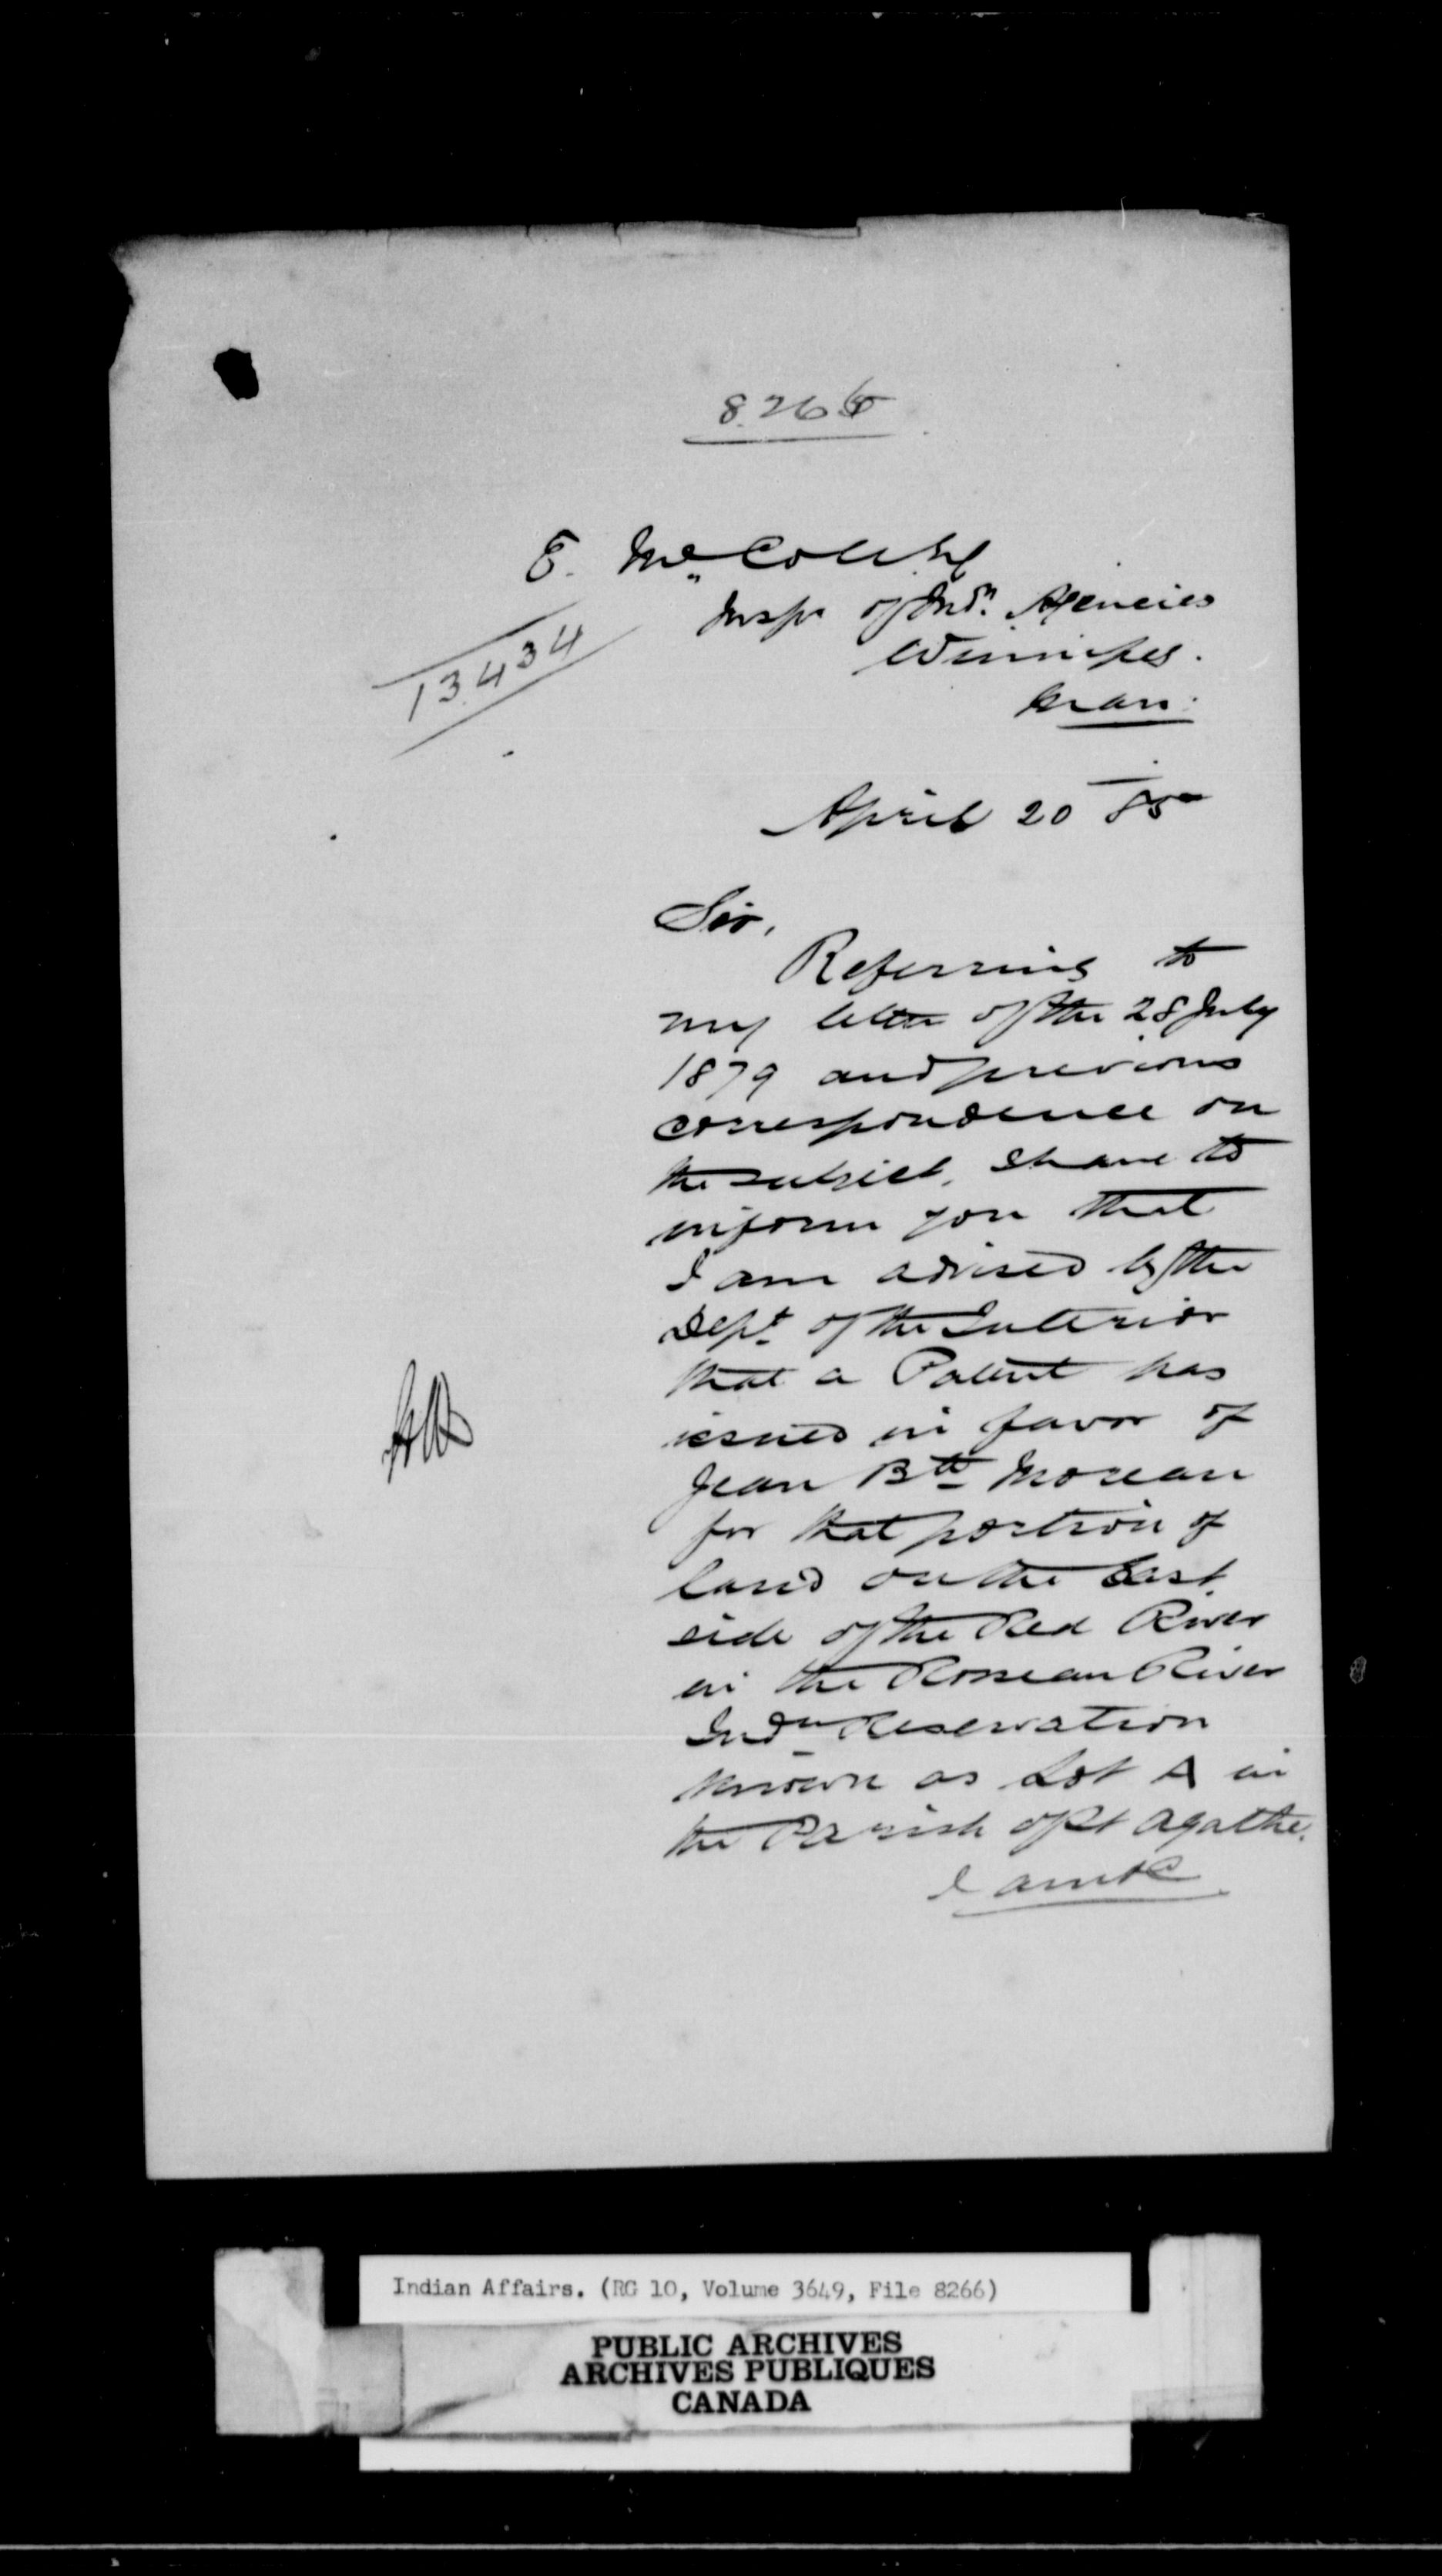 8266
E. McColl Esq
Inspr of Indn. Agencies
Winnipeg.
Man.
13434
April 20 85
Sir,
Referring to
my letter of the 28 July
1879 and previous
correspondence on
the subject, I have to
inform you that
I am advised by the
Dept. of the Interior
that a Patent has
issued in favor of
Jean Bte Moreau
for that portion of
land on the East
side of the Red River
in the Roseau River
Indn Reservation
known as Lot A in
the Parish of St Agathe.
I am &c
Indian Affairs. (RG 10, Volume 3649, File 8266)
PUBLIC ARCHIVES
ARCHIVES PUBLIQUES
CANADA